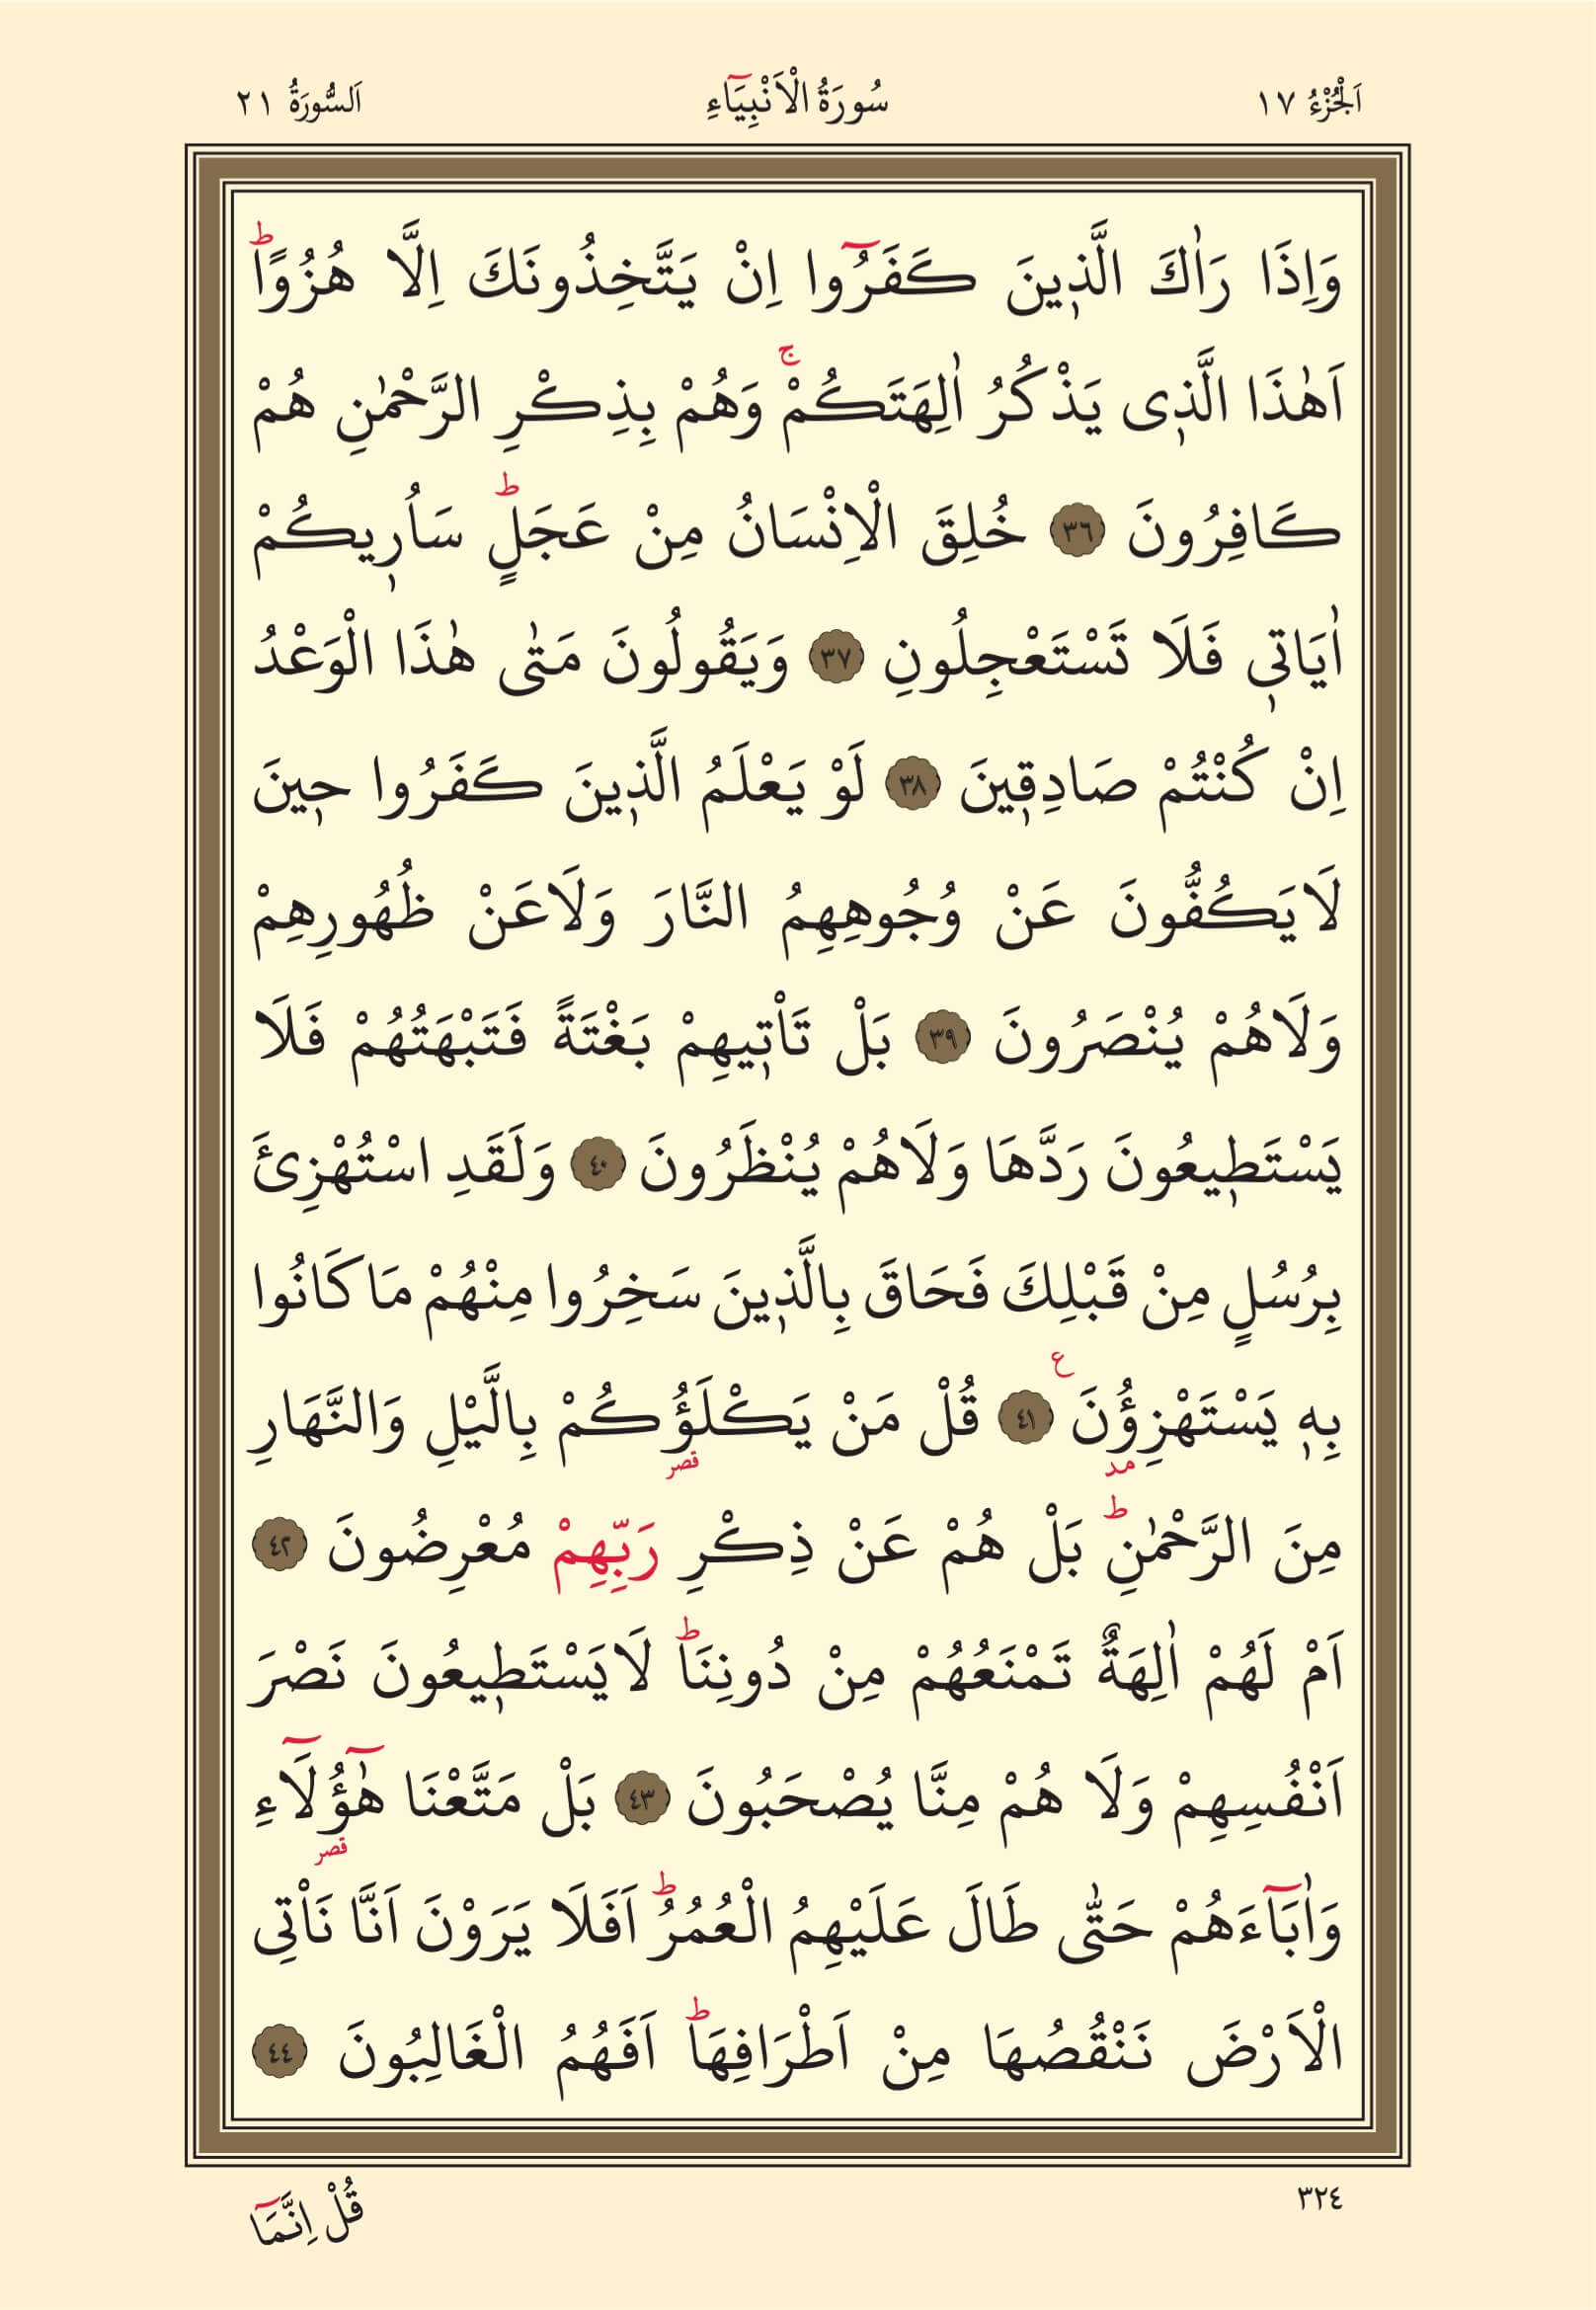 اَلْجُزْءُ ١٧
سُورَةُ الْاَنْبِيَٓاءِ
اَلسُّورَةُ ٢١
وَاِذَا رَاٰكَ الَّذ۪ينَ كَفَرُٓوا اِنْ يَتَّخِذُونَكَ اِلَّا هُزُوًاۜ
اَهٰذَا الَّذ۪ى يَذْكُرُ اٰلِهَتَكُمْۚ وَهُمْ بِذِكْرِ الرَّحْمٰنِ هُمْ
كَافِرُونَ ٣٦ خُلِقَ الْاِنْسَانُ مِنْ عَجَلٍۜ سَاُر۪يكُمْ
اٰيَات۪ى فَلَا تَسْتَعْجِلُونِ ٣٧ وَيَقُولُونَ مَتٰى هٰذَا الْوَعْدُ
اِنْ كُنْتُمْ صَادِق۪ينَ ٣٨ لَوْ يَعْلَمُ الَّذ۪ينَ كَفَرُوا ح۪ينَ
لَا يَكُفُّونَ عَنْ وُجُوهِهِمُ النَّارَ وَلَا عَنْ ظُهُورِهِمْ
وَلَا هُمْ يُنْصَرُونَ ٣٩ بَلْ تَاْت۪يهِمْ بَغْتَةً فَتَبْهَتُهُمْ فَلَا
يَسْتَط۪يعُونَ رَدَّهَا وَلَا هُمْ يُنْظَرُونَ ٤٠ وَلَقَدِ اسْتُهْزِئَ
بِرُسُلٍ مِنْ قَبْلِكَ فَحَاقَ بِالَّذ۪ينَ سَخِرُوا مِنْهُمْ مَا كَانُوا
بِه۪ يَسْتَهْزِؤُ۫نَ ع مد ٤١ قُلْ مَنْ يَكْلَؤُكُمْ قصر بِالَّيْلِ وَالنَّهَارِ
مِنَ الرَّحْمٰنِۜ بَلْ هُمْ عَنْ ذِكْرِ رَبِّهِمْ مُعْرِضُونَ ٤٢
اَمْ لَهُمْ اٰلِهَةٌ تَمْنَعُهُمْ مِنْ دُونِنَاۜ لَا يَسْتَط۪يعُونَ نَصْرَ
اَنْفُسِهِمْ وَلَا هُمْ مِنَّا يُصْحَبُونَ ٤٣ بَلْ مَتَّعْنَا هٰٓؤُ۬لَٓاءِ قصر
وَاٰبَٓاءَهُمْ حَتّٰى طَالَ عَلَيْهِمُ الْعُمُرُۜ اَفَلَا يَرَوْنَ اَنَّا نَاْتِى
الْاَرْضَ نَنْقُصُهَا مِنْ اَطْرَافِهَاۜ اَفَهُمُ الْغَالِبُونَ ٤٤
٣٢٤
قُلْ اِنَّمَٓا